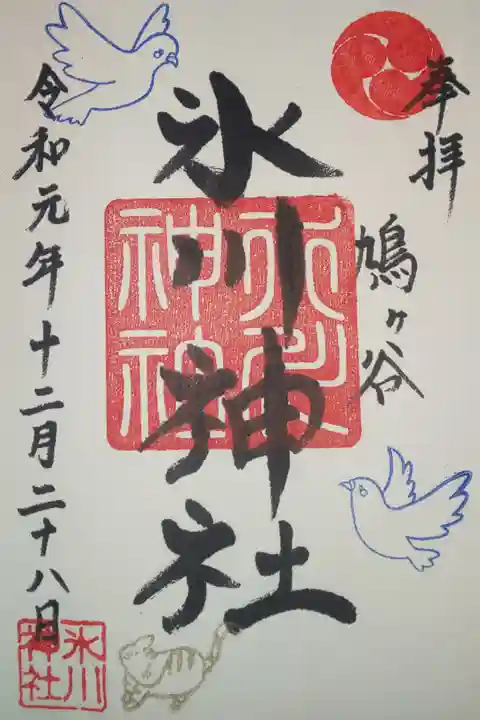 奉拝
鳩ヶ谷
氷川神社
令和元年十二月二十八日
氷川
神社